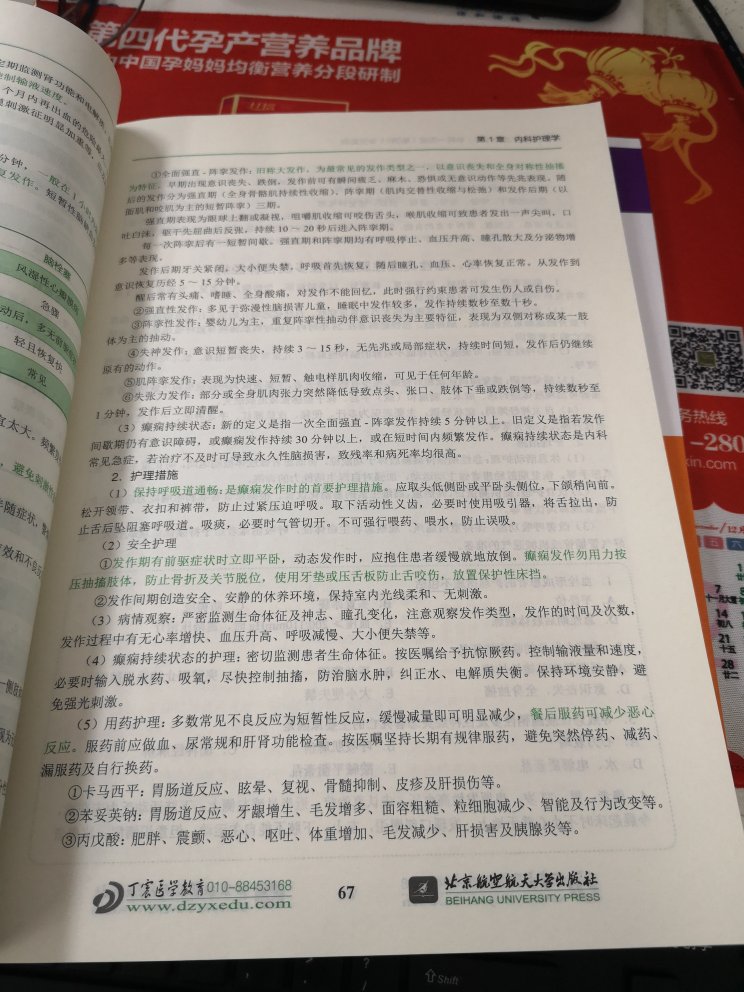 第四代孕产营养品牌
中国孕妈妈均衡营养分段研制
第1章 内科护理学
①全面强直-阵挛发作：旧称大发作，为最常见的发作类型之一，以意识丧失和全身对称性抽搐
为特征，早期出现意识丧失、跌倒，发作前可有瞬间疲乏、麻木、恐惧或无意识动作等先兆表现。随
后的发作分为强直期（全身骨骼肌持续性收缩）、阵挛期（肌肉交替性收缩与松弛）和发作后期（以
面肌和咬肌为主的短暂阵挛）三期。
强直期表现为眼球上翻或凝视，咀嚼肌收缩可咬伤舌头，喉肌收缩可致患者发出一声尖叫，口
吐白沫，躯干先屈曲后反张，持续10～20秒后进入阵挛期。
每一次阵挛后有一短暂间歇。强直期和阵挛期均有呼吸停止、血压升高、瞳孔散大及分泌物增
多等表现。
发作后期牙关紧闭，大小便失禁，呼吸首先恢复，随后瞳孔、血压、心率恢复正常。从发作到
意识恢复历经5～15分钟。
醒后常有头痛、嗜睡、全身酸痛，对发作不能回忆，此时强行约束患者可发生伤人或自伤。
②强直性发作：多见于弥漫性脑损害儿童，睡眠中发作较多，发作持续数秒至数十秒。
③阵挛性发作：婴幼儿为主，重复阵挛性抽动伴意识丧失为主要特征，表现为双侧对称或某一肢
体为主的抽动。
④失神发作：意识短暂丧失，持续3～15秒，无先兆或局部症状，持续时间短，发作后仍继续
原有的动作。
⑤肌阵挛发作：表现为快速、短暂、触电样肌肉收缩，可见于任何年龄。
⑥失张力发作：部分或全身肌肉张力突然降低导致点头、张口、肢体下垂或跌倒等，持续数秒至
1分钟，发作后立即清醒。
（3）癫痫持续状态：新的定义是指一次全面强直-阵挛发作持续5分钟以上。旧定义是指若发作
间歇期仍有意识障碍，或癫痫发作持续30分钟以上，或在短时间内频繁发作。癫痫持续状态是内科
常见急症，若治疗不及时可导致永久性脑损害，致残率和病死率均很高。
2．护理措施
（1）保持呼吸道通畅：是癫痫发作时的首要护理措施。应取头低侧卧或平卧头侧位，下颌稍向前。
松开领带、衣扣和裤带，防止过紧压迫呼吸。取下活动性义齿，必要时使用吸引器，将舌拉出，防
止舌后坠阻塞呼吸道。吸痰，必要时气管切开。不可强行喂药、喂水，防止误吸。
（2）安全护理
①发作前有前驱症状时立即平卧，动态发作时，应抱住患者缓慢就地放倒。癫痫发作勿用力按
压抽搐肢体，防止骨折及关节脱位，使用牙垫或压舌板防止舌咬伤，放置保护性床挡。
②发作间期创造安全、安静的休养环境，保持室内光线柔和、无刺激。
（3）病情观察：严密监测生命体征及神志、瞳孔变化，注意观察发作类型，发作的时间及次数，
发作过程中有无心率增快、血压升高、呼吸减慢、大小便失禁等。
（4）癫痫持续状态的护理：密切监测患者生命体征。按医嘱给予抗惊厥药。控制输液量和速度，
必要时输入脱水药、吸氧，尽快控制抽搐，防治脑水肿，纠正水、电解质失衡。保持环境安静，避
免强光刺激。
（5）用药护理：多数常见不良反应为短暂性反应，缓慢减量即可明显减少，餐后服药可减少恶心
反应。服药前应做血、尿常规和肝肾功能检查。按医嘱坚持长期有规律服药，避免突然停药、减药、
漏服药及自行换药。
①卡马西平：胃肠道反应、眩晕、复视、骨髓抑制、皮疹及肝损伤等。
②苯妥英钠：胃肠道反应、牙龈增生、毛发增多、面容粗糙、粒细胞减少、智能及行为改变等。
③丙戊酸：肥胖、震颤、恶心、呕吐、体重增加、毛发减少、肝损害及胰腺炎等。
丁震医学教育010-88453168
www.dzyxedu.com
67
北京航空航天大学出版社
BEIHANG UNIVERSITY PRESS
脑栓塞
风湿性心瓣膜病
急骤
轻且恢复快
常见
务热线
-280
kin.com
7
14
初八
21
十五
28
廿二
Shift